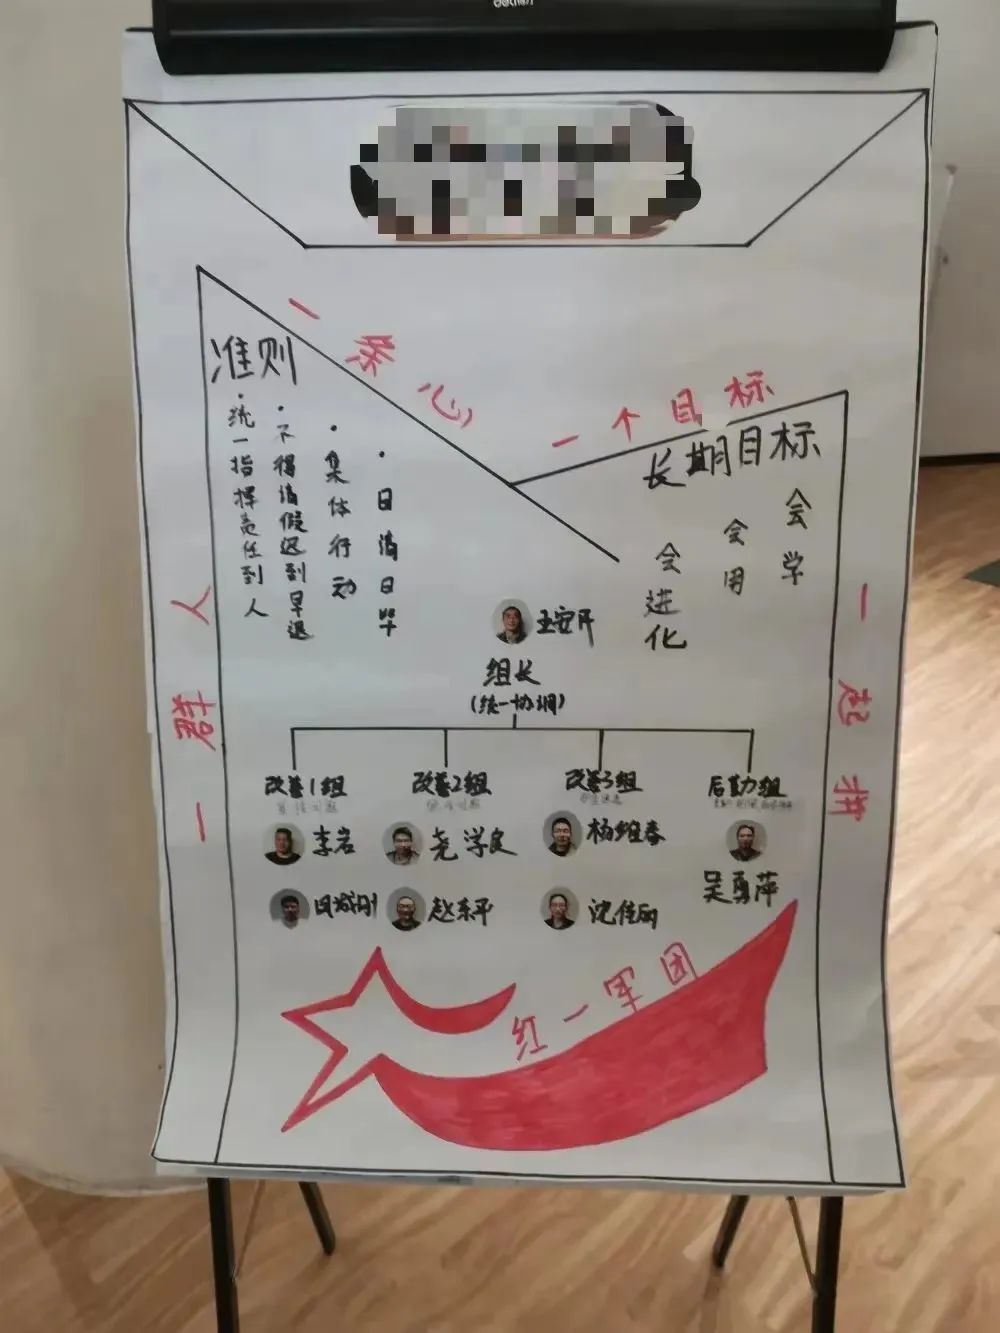 一条心
一个目标
准则
·统一指挥责任到人
·不得请假迟到早退
·集体行动
·日清日毕
长期目标
会学
会用
会进化
一起拼
一群人
组长
(统一协调)
改善1组
改善2组
改善3组
后勤组
李岩
尧学良
杨维春
赵东平
吴勇萍
红一军团